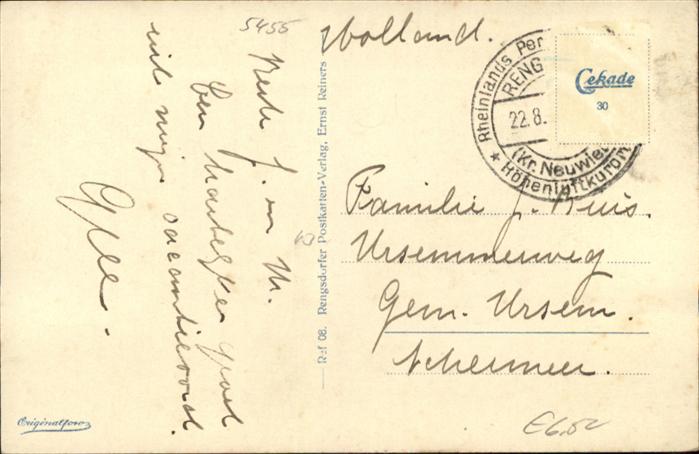 5455
Holland.
Beste J. en M.
Een hartelijke groet
uit mijn vacantieoord.
Rheinlands Per
RENG
22.8.
(Kr. Neuwied
* Höhenluftkurort
Cekade
30
Familie J.
Ursemmerweg
Gem. Ursem.
Schermer.
Ref 08. Rengsdorfer Postkarten-Verlag, Ernst Reiners
Originalfoto